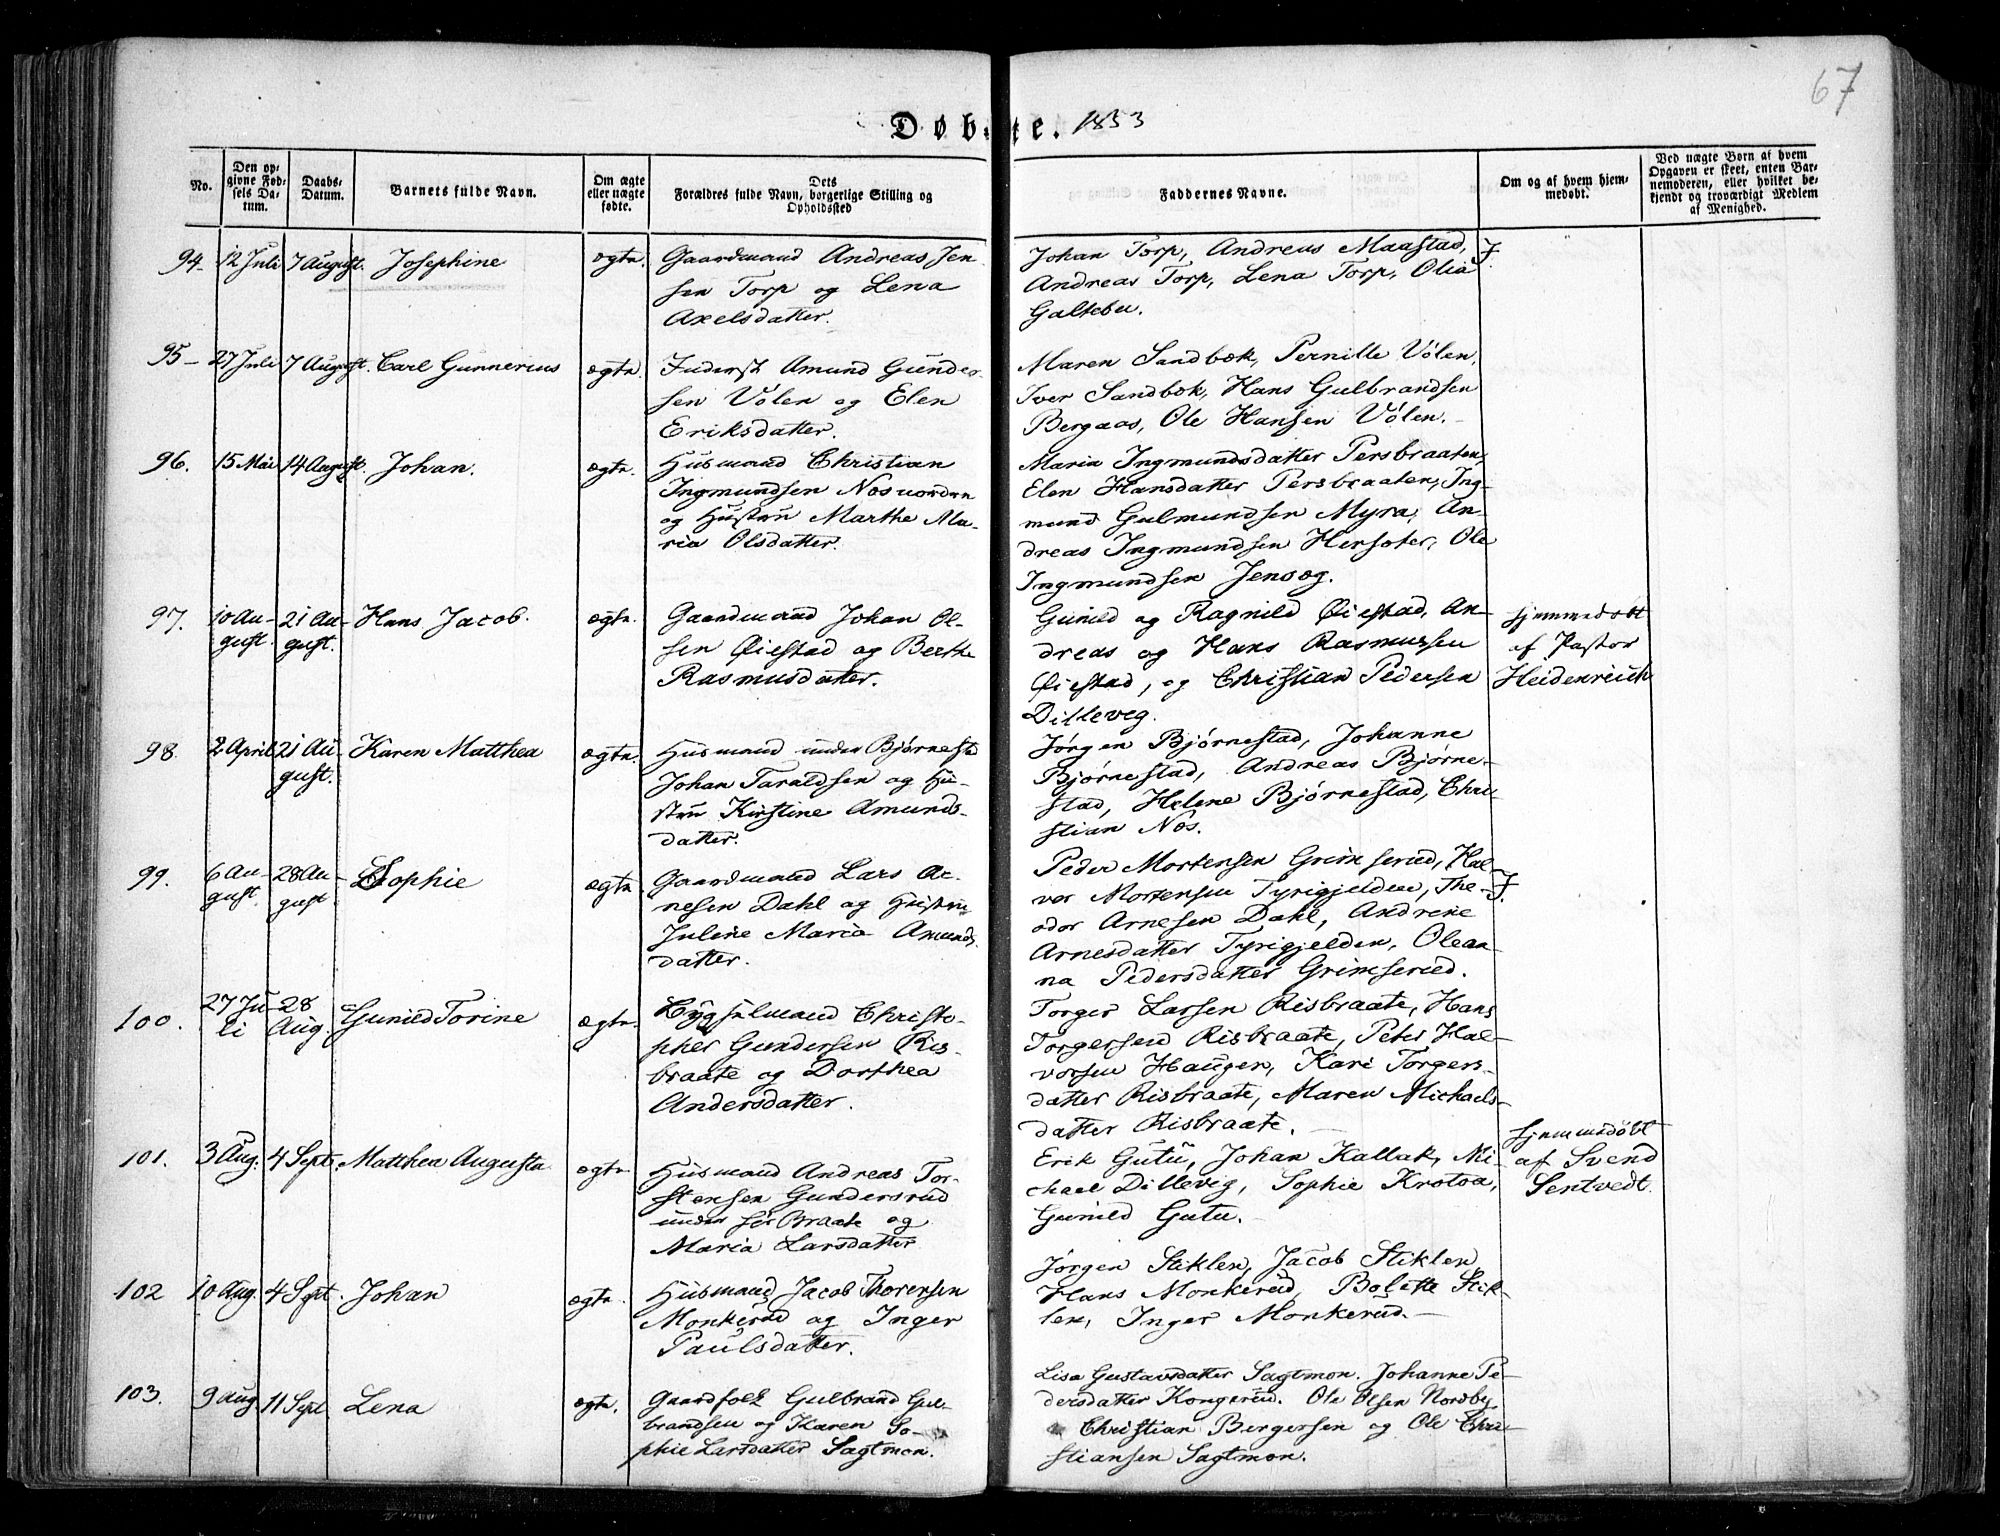 67
Døbte. 1853
No.
Den op-
givne Fød-
sels Da-
tum.
Daabs-
Datum.
Barnets fulde Navn.
Om ægte
eller uægte
fødte.
Forældres fulde Navn, Dets borgerlige Stilling og
Opholdssted
Faddernes Navne.
Om og af hvem hjem-
medøbt.
Ved uægte Børn af hvem
Opgaven er skeet, enten Bar-
nemoderen, eller hvilket be-
kjendt og troværdigt Medlem
af Menighed.
94. 12 Juli 7 August. Josephine ægte.
Gaardmand Andreas Jen-
sen Torp og Lena
Axelsdatter.
Johan Torp, Andreas Maastad,
Andreas Torp, Lena Torp, Olia
Galtebu.
95 27 Juli 7 August. Carl Gunnerius ægte.
Inderst Amund Gunder-
sen Vølen og Elen
Eriksdatter.
Maren Sandbæk, Pernille Vølen,
Iver Sandbæk, Hans Gulbrandsen
Bergaas, Ole Hansen Vølen.
96. 15 Mai 14 August. Johan. ægte.
Husmand Christian
Ingmundsen Nosvordrn
og Hustru Marthe Ma-
ria Olsdatter.
Maria Ingmundsdatter Persbraaten,
Elen Hansdatter Persbraaten, Ing-
mund Gulmundsen Myra, An-
dreas Ingmundsen Hersoter, Ole
Ingmundsen Jensøg.
97. 10 Au- 21 Au- Hans Jacob. ægte.
gust. gust.
Gaardmand Johan Ol-
sen Øiestad og Berthe
Rasmusdatter.
Gunild og Ragnild Øiestad, An-
dreas og Hans Rasmussen
Øiestad, og Christian Pedersen
Dilleveg.
hjemmedøbt
af Pastor
Heidenreich
98. 2 April 21 Au- Karen Matthea ægte.
gust.
Husmand under Bjørnestad
Johan Taraldsen og Hu-
stru Kirstine Amunds-
datter.
Jørgen Bjørnestad, Johanne
Bjørnestad, Andreas Bjørne-
stad, Helene Bjørnestad, Chri-
stian Nos.
99. 6 Au- 28 Au- Sophie ægte
gust. gust
Gaardmand Lars Ar-
nesen Dahl og Hustru
Juline Maria Amunds-
datter.
Peder Mortensen Grimserud, Hal-
vor Mortensen Tyrigjelden, The-
odor Arnesen Dahl, Andrine
Arnesdatter Tyrigjelden, Olean-
na Pedersdatter Grimserud.
100. 27 Ju- 28 Gunild Torine ægte.
li Aug.
Bygselmand Christo-
pher Gundersen Ris-
braate og Dorthea
Andersdatter.
Torger Larsen Risbraate, Hans
Torgersen Risbraate, Peter Hal-
vorsen Haugen, Kari Torgers-
datter Risbraate, Maren Michaels-
datter Risbraate.
101. 3 Aug. 4 Sept. Matthea Augusta ægte
Husmand Andreas Tor-
stensen Gundersrud
under Braate og
Maria Larsdatter
Erik Gutu, Johan Kallak, Mi-
chael Dillevig, Sophie Krotoa,
Gunild Gutu.
hjemmedøbt
af Svend
Sentvedt.
102 10 Aug. 4 Sept. Johan ægte.
Husmand Jacob Thorersen
Monkerud og Inger
Paulsdatter.
Jørgen Stiklen, Jacob Stiklen,
Hans Monkerud, Bolette Stik-
len, Inger Monkerud.
103. 9 Aug. 11 Sept Lena ægte.
Gaardfolk Gulbrand Gul-
brandsen og Karen So-
phie Larsdatter Sagtmon.
Lisa Gustavsdatter Sagtmon. Johanne Pe-
dersdatter Kongerud. Ole Olsen Nordby
Christian Bergersen og Ole Chri-
stiansen Sagtmon.